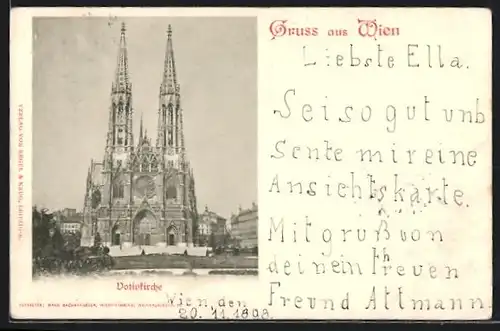 Gruss aus Wien
Liebste Ella.
Sei so gut unb
Sente mir eine
Ansichtskarte.
Mit gruß von
deinem treuen
Freund Attmann.
Votivkirche
Wien, den
20. 11. 1898